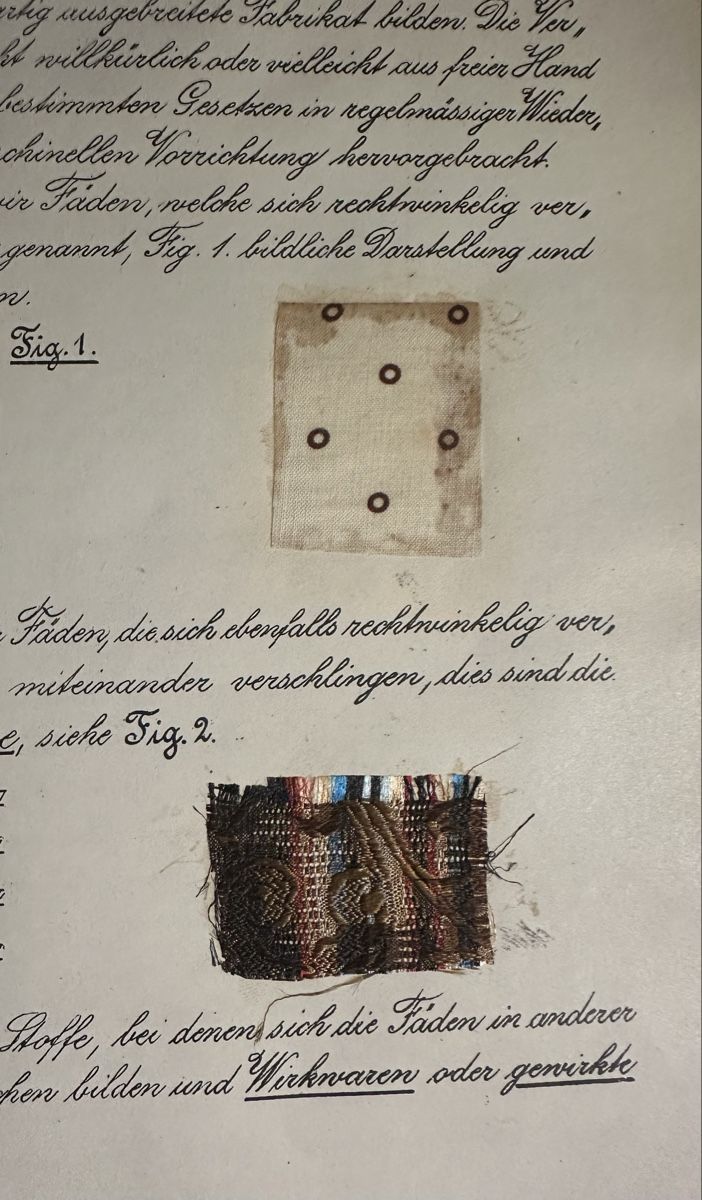 artig ausgebreitete Fabrikat bilden. Die Ver„
ht willkürlich oder vielleicht aus freier Hand
bestimmten Gesetzen in regelmässiger Wieder„
chinellen Vorrichtung hervorgebracht.
wir Fäden, welche sich rechtwinkelig ver„
genannt, Fig. 1. bildliche Darstellung und
n.
Fig. 1.
Fäden, die sich ebenfalls rechtwinkelig ver„
miteinander verschlingen, dies sind die
e, siehe Fig. 2.
Stoffe, bei denen sich die Fäden in anderer
chen bilden und Wirkwaren oder gewirkte